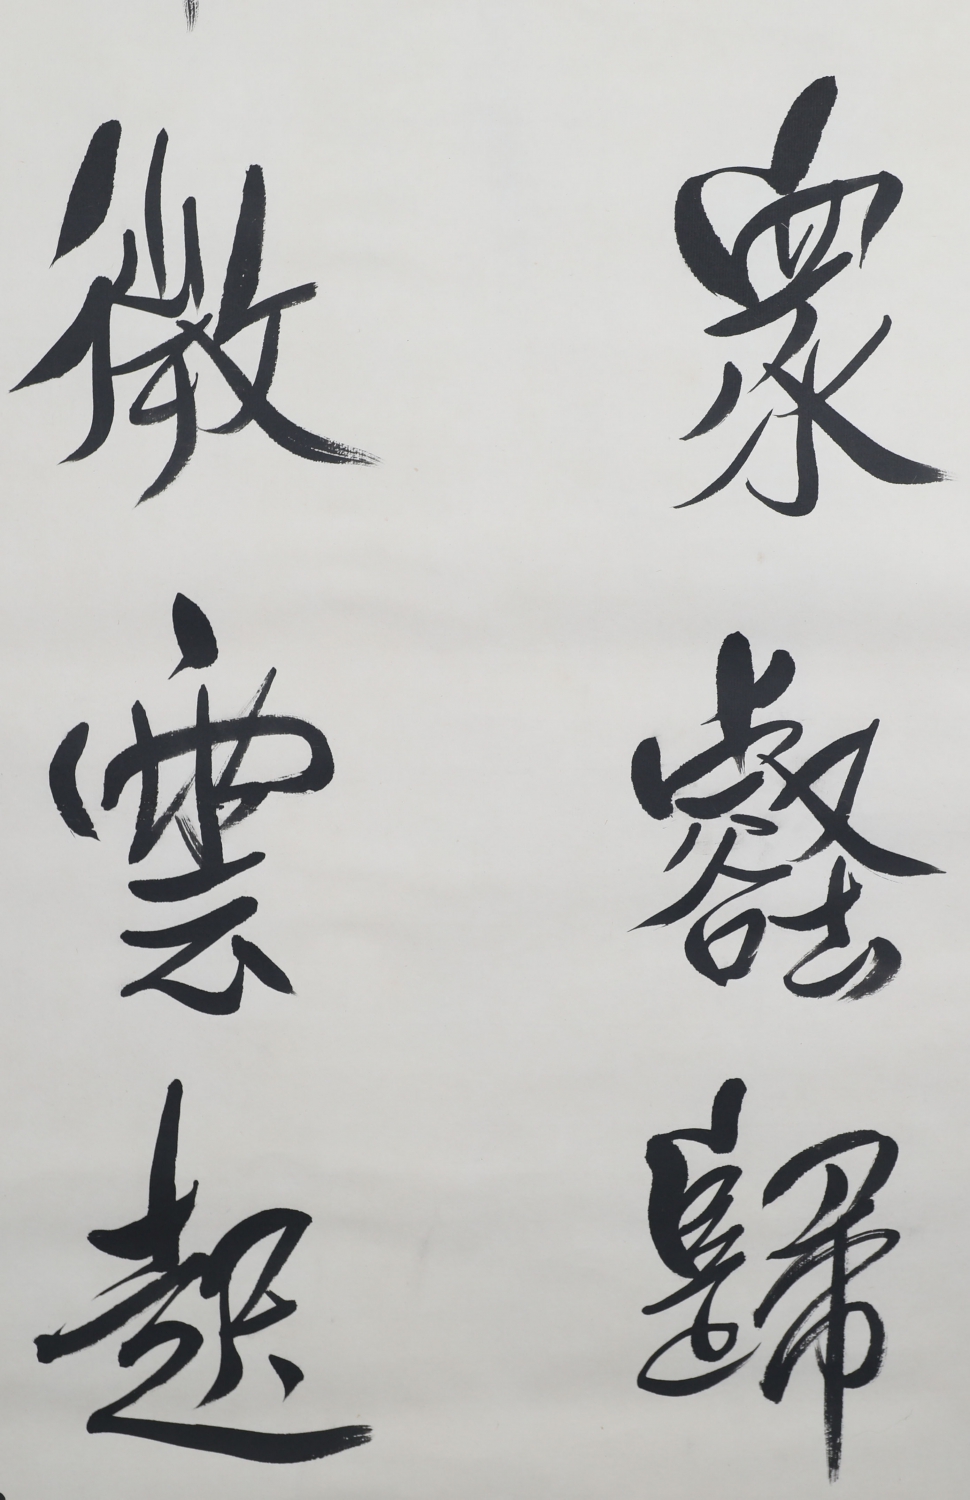 衆壑歸
微雲起